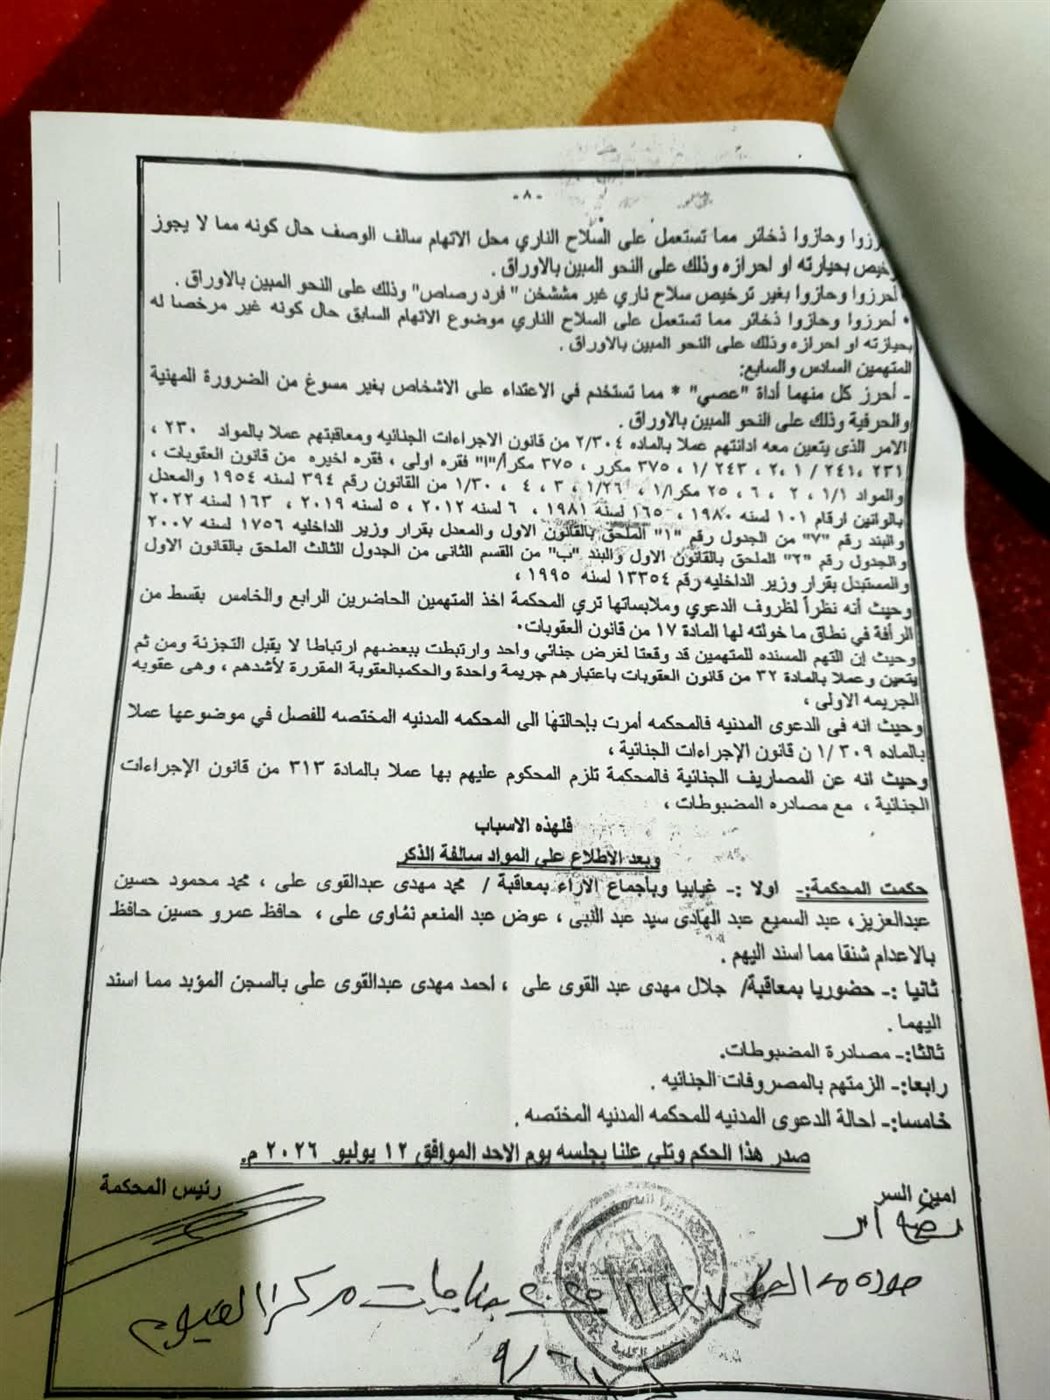 -٨-
حرزوا وحازوا ذخائر مما تستعمل على السلاح الناري محل الاتهام سالف الوصف حال كونه مما لا يجوز
خيص بحيازته او احرازه وذلك على النحو المبين بالاوراق .
أحرزوا وحازوا بغير ترخيص سلاح ناري غير مششخن " فرد رصاص" وذلك على النحو المبين بالاوراق .
* أحرزوا وحازوا ذخائر مما تستعمل على السلاح الناري موضوع الاتهام السابق حال كونه غير مرخصا له
بحيازته او احرازه وذلك على النحو المبين بالاوراق .
المتهمين السادس والسابع:
- أحرز كل منهما أداة "عصي" * مما تستخدم في الاعتداء على الاشخاص بغير مسوغ من الضرورة المهنية
والحرفية وذلك على النحو المبين بالاوراق .
الامر الذى يتعين معه ادانتهم عملا بالماده ٢/٣٠٤ من قانون الاجراءات الجنائيه ومعاقبتهم عملا بالمواد ٢٣٠ ،
٢٣١ ،٢٤١ / ١ ،٢ ، ٢٤٣ /١ ، ٣٧٥ مكرر ، ٣٧٥ مكرأ/"ا" فقره اولى ، فقره اخيره من قانون العقوبات ،
والمواد ١/١ ، ٢ ، ٦ ، ٢٥ مكرا/١ ، ١/٢٦ ، ٣ ، ٤ ، ١/٣٠ من القانون رقم ٣٩٤ لسنه ١٩٥٤ والمعدل
بالوانين ارقام ١٠١ لسنه ١٩٨٠ ، ١٦٥ لسنه ١٩٨١ ، ٦ لسنه ٢٠١٢ ، ٥ لسنه ٢٠١٩ ، ١٦٣ لسنه ٢٠٢٢
والبند رقم "٧" من الجدول رقم "١" الملحق بالقانون الاول والمعدل بقرار وزير الداخليه ١٧٥٦ لسنه ٢٠٠٧
والجدول رقم "٢" الملحق بالقانون الاول والبند "ب" من القسم الثانى من الجدول الثالث الملحق بالقانون الاول
والمستبدل بقرار وزير الداخليه رقم ١٣٣٥٤ لسنه ١٩٩٥ ،
وحيث أنه نظراً لظروف الدعوي وملابساتها تري المحكمة اخذ المتهمين الحاضرين الرابع والخامس بقسط من
الرأفة في نطاق ما خولته لها المادة ١٧ من قانون العقوبات.
وحيث إن التهم المسنده للمتهمين قد وقعتا لغرض جنائي واحد وارتبطت ببعضهم ارتباطا لا يقبل التجزئة ومن ثم
يتعين وعملا بالمادة ٣٢ من قانون العقوبات باعتبارهم جريمة واحدة والحكمبالعقوبة المقررة لأشدهم ، وهى عقوبه
الجريمه الاولى ،
وحيث انه فى الدعوى المدنيه فالمحكمه أمرت بإحالتها الى المحكمه المدنيه المختصه للفصل في موضوعها عملا
بالماده ١/٣٠٩ ن قانون الإجراءات الجنائية ،
وحيث انه عن المصاريف الجنائية فالمحكمة تلزم المحكوم عليهم بها عملا بالمادة ٣١٣ من قانون الإجراءات
الجنائية ، مع مصادره المضبوطات ،
فلهذه الاسباب
وبعد الاطلاع على المواد سالفة الذكر
حكمت المحكمة:- اولا :- غيابيا وبأجماع الاراء بمعاقبة / محمد مهدى عبدالقوى على ، محمد محمود حسين
عبدالعزيز، عبد السميع عبد الهادى سيد عبد النبى ، عوض عبد المنعم نشاوى على ، حافظ عمرو حسين حافظ
بالاعدام شنقا مما اسند اليهم .
ثانيا :- حضوريا بمعاقبة/ جلال مهدى عبد القوى على ، احمد مهدى عبدالقوى على بالسجن المؤبد مما اسند
اليهما .
ثالثا:- مصادرة المضبوطات.
رابعا:- الزمتهم بالمصروفات الجنائيه .
خامسا:- احالة الدعوى المدنيه للمحكمه المدنيه المختصه .
صدر هذا الحكم وتلي علنا بجلسه يوم الاحد الموافق ١٢ يوليو ٢٠٢٦ م.
امين السر
رئيس المحكمة
صورة من الحكم ٢٠٢٥ جنايات مركز الفيوم